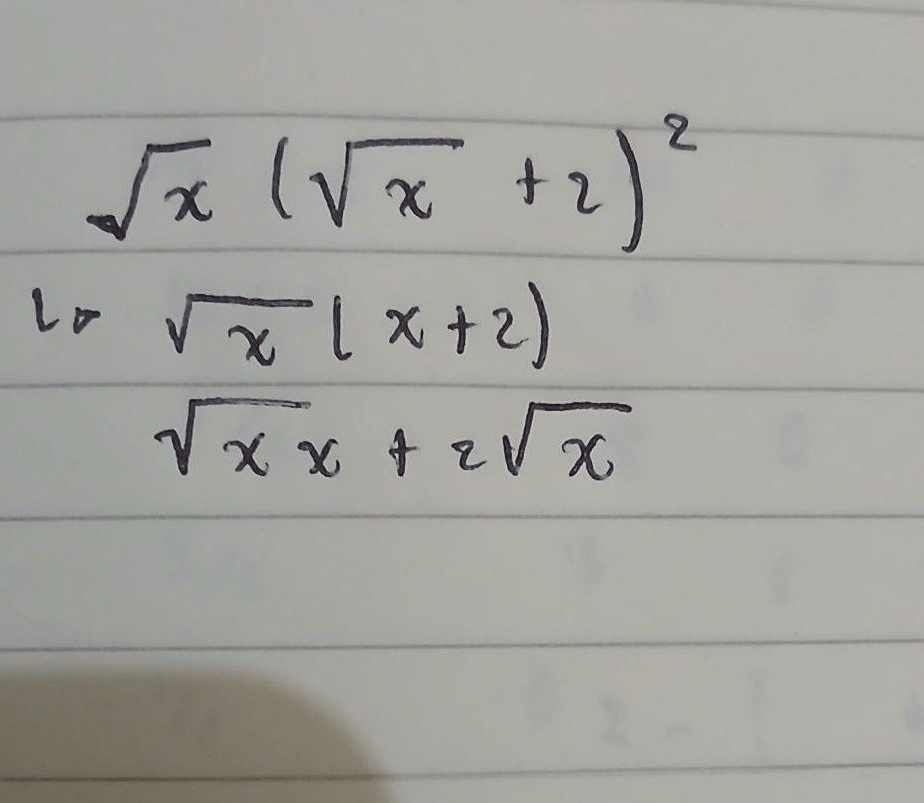 √x (√x + 2)²
↳ √x (x + 2)
√x x + 2√x